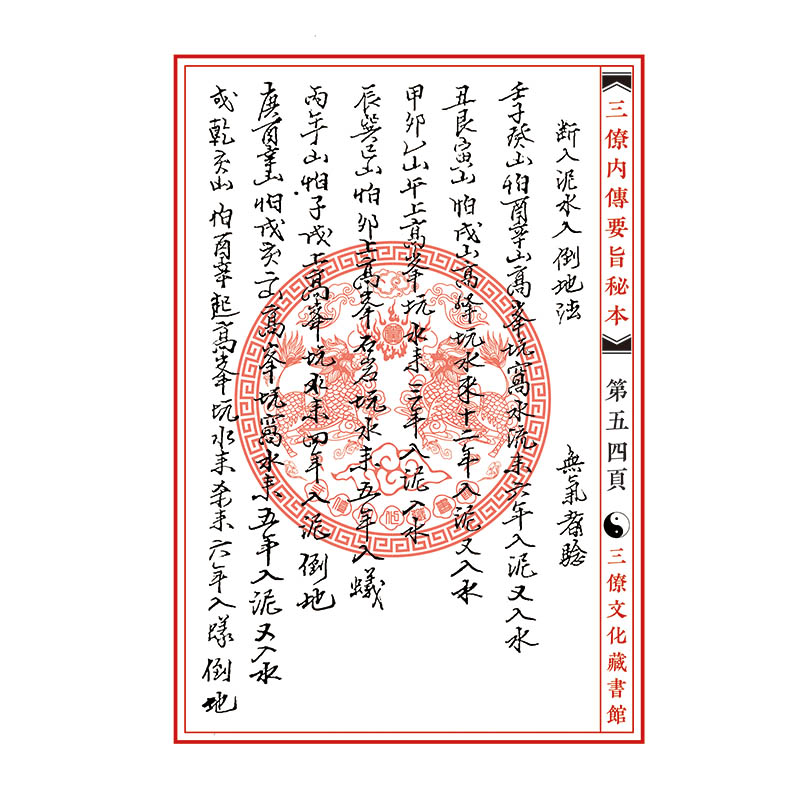 三僚内傳要旨秘本
第五四頁
三僚文化藏書館
斷入泥水入倒地法
無氣者驗
壬子癸山怕酉辛山高峯坑窩水流来六年入泥又入水
丑艮寅山怕戌山高峰坑水來十二年入泥又入水
甲卯乙山午上高峯坑水来三年入泥入水
辰巽巳山怕卯上高峯石岩坑水来五年入蟻
丙午山怕子戌上高峯坑水来四年入泥倒地
庚酉辛山怕戌亥方高峯坑窩水来五年入泥又入水
戌乾亥山怕酉辛起高峯坑水来年来六年入蟻倒地